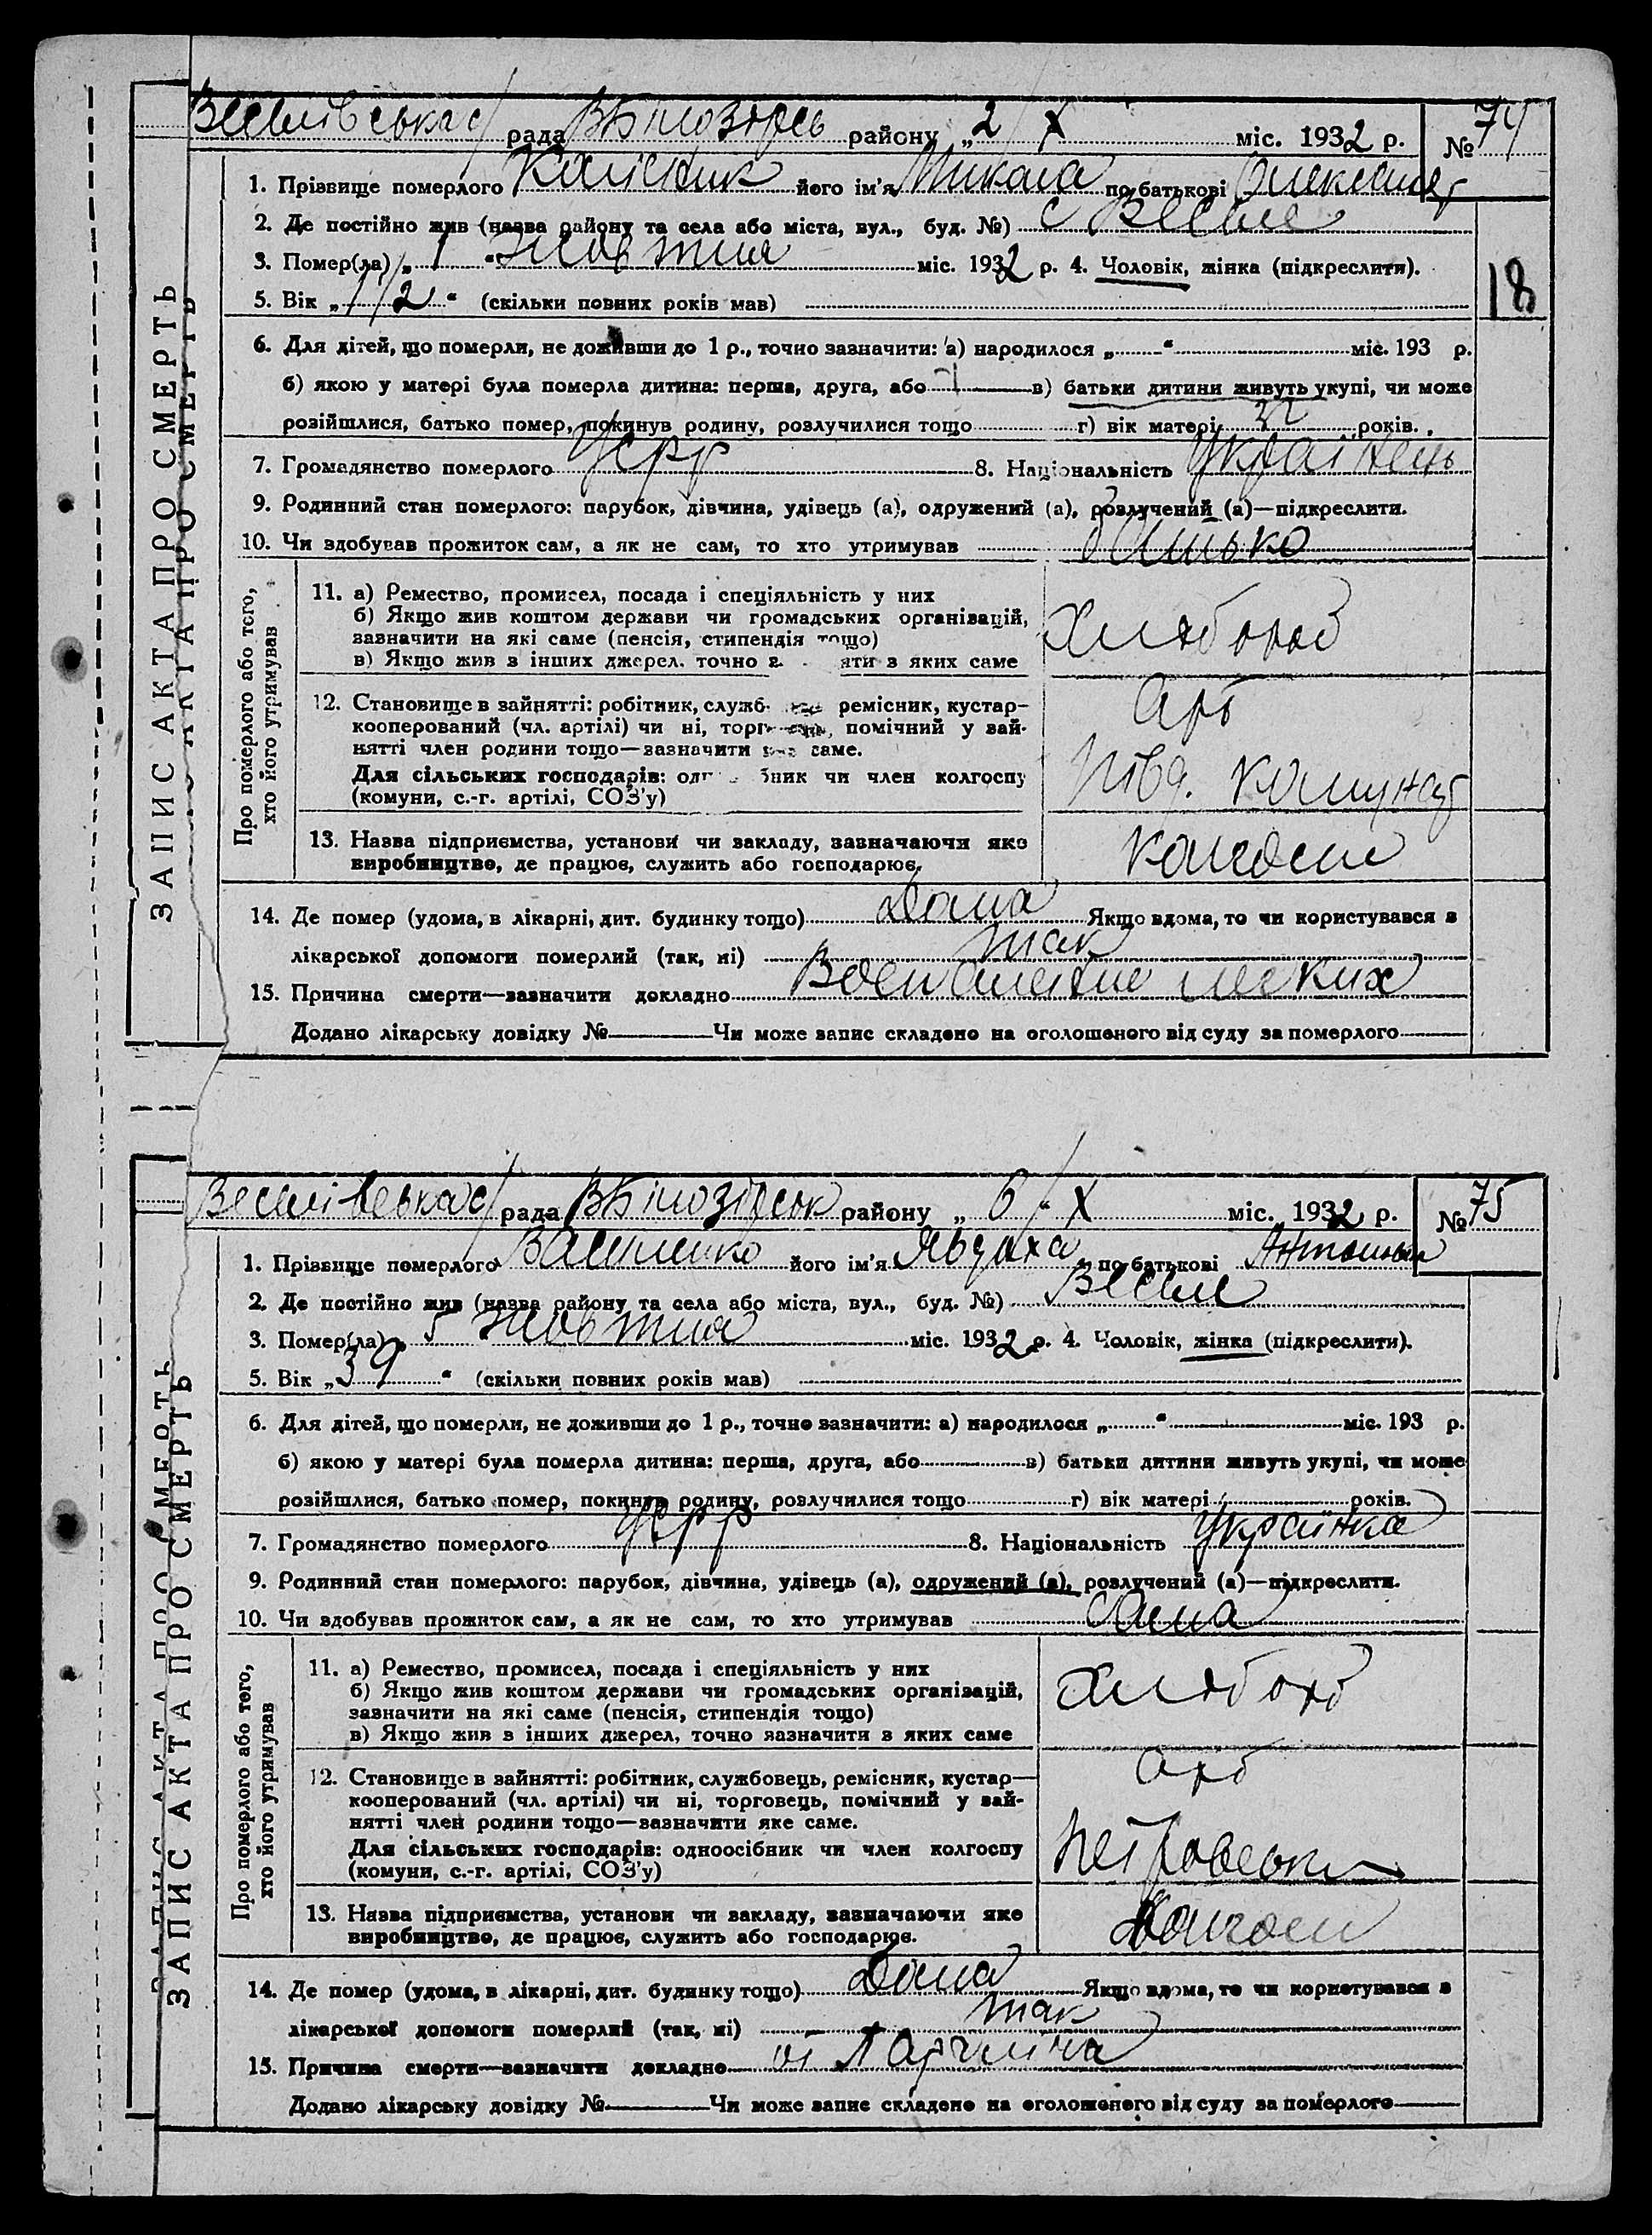 ЗАПИС АКТА ПРО СМЕРТЬ
Веселівська с/рада В Білозірсь району „2/X міс. 1932 р. № 74
1. Прізвище померлого його ім'я Микола по батькові Олександ
2. Де постійно жив (назва району та села або міста, вул., буд. №) с Веселе
3. Помер(ла) „1“ жовтня міс. 1932 р. 4. Чоловік, жінка (підкреслити).
5. Вік „1/2“ (скільки повних років мав)
18
6. Для дітей, що померли, не доживши до 1 р., точно зазначити: а) народилося „ “ міс. 193 р.
б) якою у матері була померла дитина: перша, друга, або в) батьки дитини живуть укупі, чи може
розійшлися, батько помер, покинув родину, розлучилися тощо г) вік матері 32 років.
7. Громадянство померлого УСРР 8. Національність українець
9. Родинний стан померлого: парубок, дівчина, удівець (а), одружений (а), розлучений (а)—підкреслити.
10. Чи здобував прожиток сам, а як не сам, то хто утримував батько
Про померлого або того, хто його утримував
11. а) Ремество, промисел, посада і спеціяльність у них
б) Якщо жив коштом держави чи громадських організацій,
зазначити на які саме (пенсія, стипендія тощо)
в) Якщо жив з інших джерел, точно з яких саме
Хлібороб
12. Становище в зайнятті: робітник, служб ремісник, кустар-
кооперований (чл. артілі) чи ні, помічний у зай-
нятті член родини тощо—зазначити саме.
Для сільських господарів: чи член колгоспу
(комуни, с.-г. артілі, СОЗ'у)
Арт
13. Назва підприємства, установи чи закладу, зазначаючи яке
виробництво, де працює, служить або господарює.
Колгосп
14. Де помер (удома, в лікарні, дит. будинку тощо) Дома Якщо вдома, то чи користувався з
лікарської допомоги померлий (так, ні) так
15. Причина смерти—зазначити докладно Воспаление легких
Додано лікарську довідку № Чи може запис складено на оголошеного від суду за померлого
ЗАПИС АКТА ПРО СМЕРТЬ
Веселівська с/рада В Білозірськ району „6/X міс. 1932 р. № 75
1. Прізвище померлого його ім'я Явдоха по батькові
2. Де постійно жив (назва району та села або міста, вул., буд. №) Веселе
3. Помер(ла) 5 жовтня міс. 1932 р. 4. Чоловік, жінка (підкреслити).
5. Вік „39“ (скільки повних років мав)
6. Для дітей, що померли, не доживши до 1 р., точно зазначити: а) народилося „ “ міс. 193 р.
б) якою у матері була померла дитина: перша, друга, або в) батьки дитини живуть укупі, чи може
розійшлися, батько помер, покинув родину, розлучилися тощо г) вік матері років.
7. Громадянство померлого УСРР 8. Національність українка
9. Родинний стан померлого: парубок, дівчина, удівець (а), одружений (а), розлучений (а)—підкреслити.
10. Чи здобував прожиток сам, а як не сам, то хто утримував сама
Про померлого або того, хто його утримував
11. а) Ремество, промисел, посада і спеціяльність у них
б) Якщо жив коштом держави чи громадських організацій,
зазначити на які саме (пенсія, стипендія тощо)
в) Якщо жив з інших джерел, точно зазначити з яких саме
Хлібороб
12. Становище в зайнятті: робітник, службовець, ремісник, кустар—
кооперований (чл. артілі) чи ні, торговець, помічний у зай-
нятті член родини тощо—зазначити яке саме.
Для сільських господарів: одноосібник чи член колгоспу
(комуни, с.-г. артілі, СОЗ'у)
Арт
Петровськ
13. Назва підприємства, установи чи закладу, зазначаючи яке
виробництво, де працює, служить або господарює.
Колгосп
14. Де помер (удома, в лікарні, дит. будинку тощо) Дома Якщо вдома, то чи користувався з
лікарської допомоги померлий (так, ні) так
15. Причина смерти—зазначити докладно
Додано лікарську довідку № Чи може запис складено на оголошеного від суду за померлого